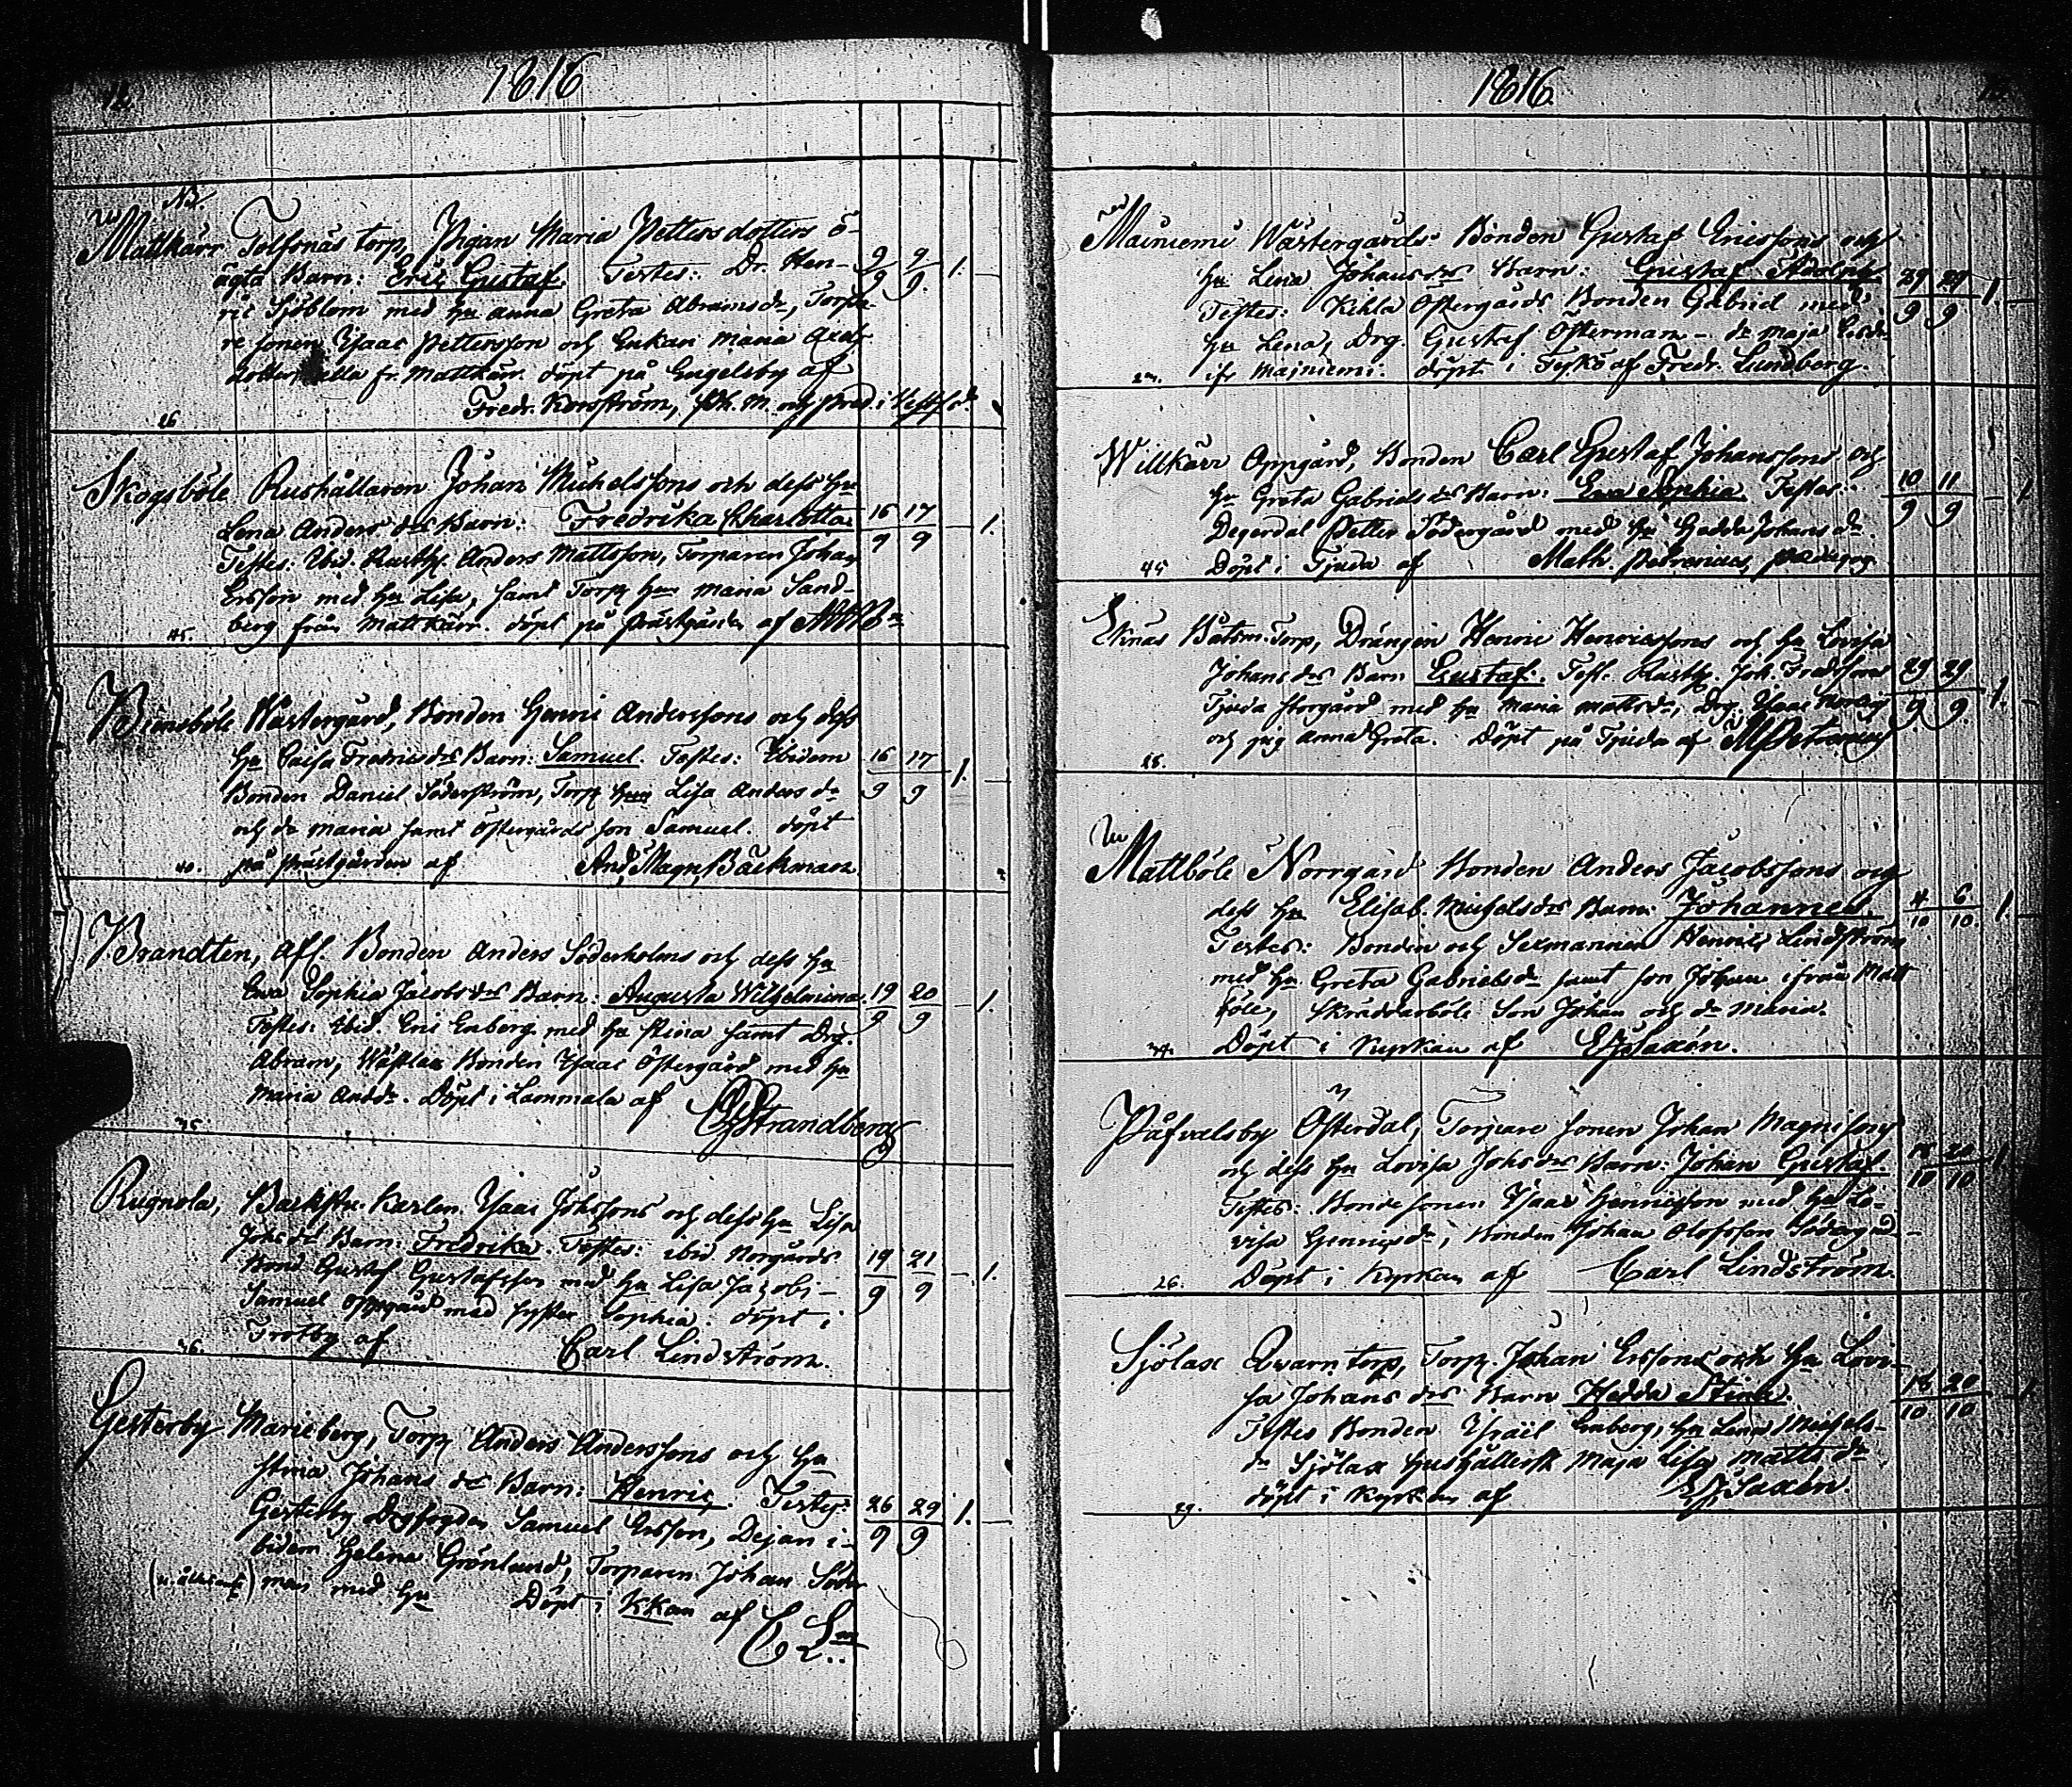 1816
NB
Mattkärr Tolfsnäs torp, Pigan Maria Pettersdotters o-
ägta Barn: Eric Gustaf. Testes: Dr. Hen- 9/9 9/9 1. —
ric Sjöblom med hu Anna Greta Abramsdr, Torpa-
re sonen Isaac Pettersson och Enkan Maria
dotter, alla fr. Mattkärr. döpt på Engelsby af
26 Fredr. Konström,
Skogsböle Rusthållaren Johan Michelssons och dess hu
Lena Anders drs Barn: Fredrika Charlotta. 16/9 17/9 — 1.
Testes: Ibid. Rusth. Anders Mattsson, Torparen Johan
Ersson med hu Lisa, samt Torp hun Maria Sand-
45. berg från Mattkärr. döpt på prästgården af
Wästergård, Bonden Henric Anderssons och dess
hu Caisa Fredricsdrs Barn: Samuel. Testes: Ibidem 16/9 17/9 1. —
Bonden Daniel Söderström, Torp hun Lisa Anders dr
och dr Maria samt Östergårds son Samuel. döpt
40. på prästgården af And. Magn. Bäckman
Brandten, Afl. Bonden Anders Söderholms och dess hu
Ewa Sophia Jacobs drs Barn: Augusta Wilhelmina. 19/9 20/9 — 1.
Testes: Ibid. Eric Enberg med hu Stina samt Drg.
Abram, Wästlax Bonden Isaac Östergård med hu
Maria Antdr. Döpt i Lammala af
35 Strandberg
Rugnola, Backstu-Karlen Isaac Johssons och dess hu Lisa
Johs dr Barn: Fredrika. Testes: ibid Norgårds 19/9 21/9 — 1.
Bond. Gustaf Gustafsson med hu Lisa Jacobi-
Samuel Oppgård med syster Sophia. döpt i
36. Trotby af Carl Lindström.
Gesterby Marieberg, Torp Anders Anderssons och hu
Stina Johans dr Barn: Henric. Testes: 26/9 29/9 1. —
Gesterby Drgfogden Samuel Ersson, Dejan i-
bidem Helena Grönlund, Torparen Johan Söder
man med hu Döpt i KKan af
C Lm
1816.
Mainiemi Wästergårds Bonden Gustaf Ericssons och
hu Lena Johansdrs Barn: Gustaf Adolph 29/9 29/9 1 —
Testes: Kihla Östergårds Bonden Gabriel med
hu Lena, Drg. Gustaf Österman - dr Maja
24. ifr Mainiemi. döpt i Tykö af Fredr. Lundberg.
Willkärr Oppgård, Bonden Carl Gustaf Johanssons och
hu Greta Gabriels drs Barn: Ewa Sophia. Testes: 10/9 11/9 — 1.
Degerdal Petter Södergård med hu Hedda Johans dr.
45 Döpt i Tjuda af Math. Petrenius,
Elinas Båtsm. Torp, Drängen Henric Henricssons och hu Lovisa
Johans drs Barn Gustaf. Test. Rusth. Joh. Fredssons 29/9 29/9 1. —
Tjuda Storgård med hu Maria Mattsdr, Drg. Isaac
och pig Anna Greta. Döpt på Tjuda af MPetrenius
25.
Mattböle Norrgård Bonden Anders Jacobssons och
dess hu Elisab. Michelsdrs Barn: Johannes. 4/10 6/10. 1. —
Testes: Bonden och Sexmannen Henric Lindström
med hu Greta Gabrielsdr samt son Johan ifrån Matt
böle, Skräddarböle Son Johan och dr Maria.
34. Döpt i Kyrkan af Saxén.
Påfvalsby Österdal, Torpare sonen Johan Magnissons
och dess hu Lovisa Johsdrs Barn: Johan Gustaf. 18/10 20/10 1. —
Testes: Bonde sonen Isaac Henricsson med hu Lo-
visa Henricsdr, Bonden Johan Olofsson Södergård -
26. Döpt i Kyrkan af Carl Lindström.
Sjölax Qwarn torp, Torp. Johan Erssons och hu Lovi-
sa Johans drs Barn Hedda Stina. 18/10 20/10 — 1.
Testes Bonden Israel Enberg, hu Lena Michels-
dr Sjölax hushållersk Maja Lisa Matts dr.
29. döpt i Kyrkan af Saxén.